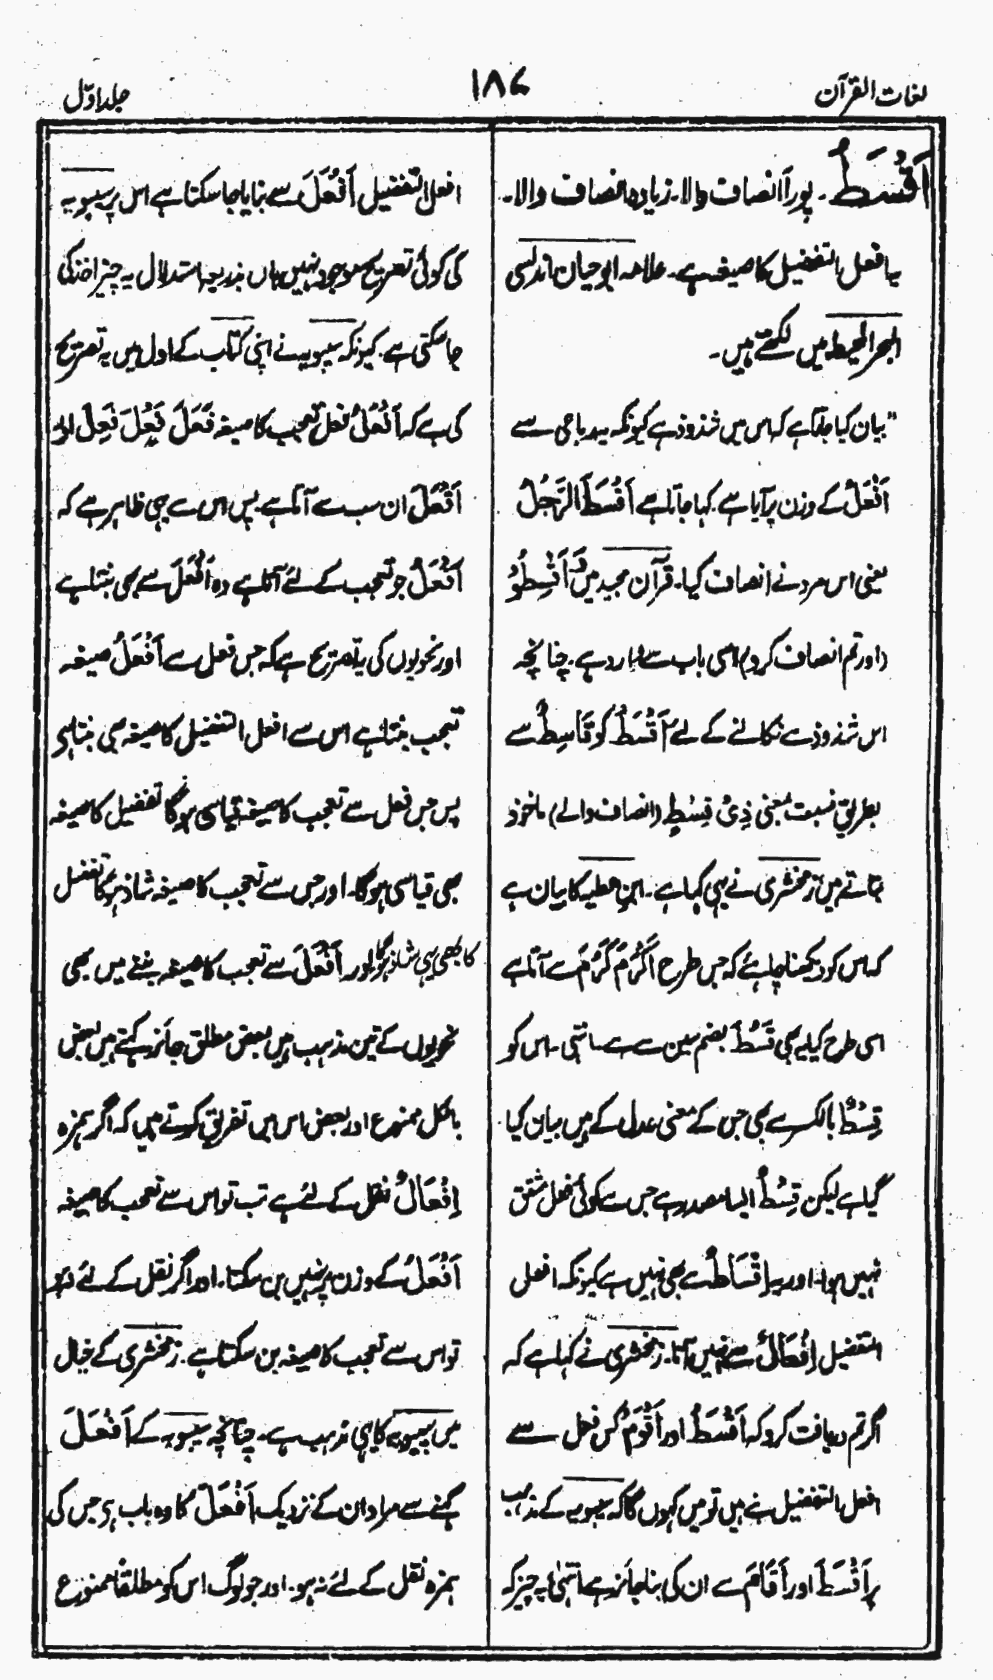 لغات القرآن
۱۸۷
جلد اوّل
اَقْسَطُ۔ پورا انصاف والا۔ زیادہ انصاف والا۔
یہ افعل التفضیل کا صیغہ ہے۔ علامہ ابو حیان اندلسی
البحر المحیط میں لکھتے ہیں۔
"بیان کیا جاتا ہے کہ اس میں شذوذ ہے کیونکہ یہ رباعی سے
اَفْعَلُ کے وزن پر آیا ہے۔ کہا جاتا ہے اَقْسَطَ الرَّجُلُ
یعنی اس مرد نے انصاف کیا۔ قرآن مجید میں وَ اَقْسِطُوْا
(اور تم انصاف کرو) اسی باب سے وارد ہے۔ چنانچہ
اس شذوذ سے نکالنے کے لئے اَقْسَطُ کو قَاسِطٌ سے
بطریق نسبت بمعنی ذِیْ قِسْطٍ (انصاف والے) ماخوذ
بتاتے ہیں۔ زمخشری نے یہی کہا ہے۔ ابن عطیہ کا بیان ہے
کہ اس کو دیکھنا چاہئے کہ جس طرح اَکْرَمُ کَرُمَ سے آتا ہے
اسی طرح کیا یہ بھی قَسُطَ بضم سین سے ہے۔ انتہی۔ اس کو
قِسْطٌ بالکسر سے بھی جس کے معنی عدل کے ہیں بیان کیا
گیا ہے لیکن قِسْطٌ ایسا مصدر ہے جس سے کوئی فعل مشتق
نہیں ہوا۔ اور یہ اِقْسَاطٌ سے بھی نہیں ہے کیونکہ افعل
التفضیل اِفْعَالٌ سے نہیں آتا۔ زمخشری نے کہا ہے کہ
اگر تم دریافت کرو کہ اَقْسَطُ اور اَقْوَمُ کس فعل سے
افعل التفضیل بنے ہیں تو میں کہوں گا کہ سیبویہ کے مذہب
پر اَقْسَطَ اور اَقَامَ سے ان کی بنا جائز ہے انتہیٰ یہ چیز کہ
افعل التفضیل اَفْعَلَ سے بنایا جا سکتا ہے اس پر سیبویہ
کی کوئی تصریح موجود نہیں ہاں بذریعہ استدلال یہ چیز اخذ کی
جا سکتی ہے۔ کیونکہ سیبویہ نے اپنی کتاب کے اول میں یہ تصریح
کی ہے کہ اَفْعَلُ فعل تعجب کا صیغہ فَعَلَ فَعُلَ فَعِلَ اور
اَفْعَلَ ان سب سے آتا ہے۔ پس اس سے بھی ظاہر ہے کہ
اَفْعَلُ جو تعجب کے لئے آتا ہے وہ اَفْعَلَ سے بھی بنتا ہے
اور نحویوں کی یہ تصریح ہے کہ جس فعل سے اَفْعَلُ صیغہ
تعجب بنتا ہے اس سے افعل التفضیل کا صیغہ بھی بنتا ہے
پس جس فعل سے تعجب کا صیغہ قیاسی ہوگا تفضیل کا صیغہ
بھی قیاسی ہوگا۔ اور جس سے تعجب کا صیغہ شاذ ہوگا تفضیل
کا بھی ہی شاذ ہوگا اور اَفْعَلَ سے تعجب کا صیغہ بننے میں بھی
نحویوں کے تین مذہب ہیں بعض مطلق جائز کہتے ہیں بعض
بالکل ممنوع اور بعض اس میں تفریق کرتے ہیں کہ اگر ہمزہ
اِفْعَالٌ نقل کے لئے ہے تب تو اس سے تعجب کا صیغہ
اَفْعَلُ کے وزن پر نہیں بن سکتا۔ اور اگر نقل کے لئے نہ ہو
تو اس سے تعجب کا صیغہ بن سکتا ہے۔ زمخشری کے خیال
میں سیبویہ کا یہی مذہب ہے۔ چنانچہ سیبویہ کے اَفْعَلَ
کہنے سے مراد ان کے نزدیک اَفْعَلَ کا وہ باب ہے جس کی
ہمزہ نقل کے لئے نہ ہو۔ اور جو لوگ اس کو مطلقاً ممنوع